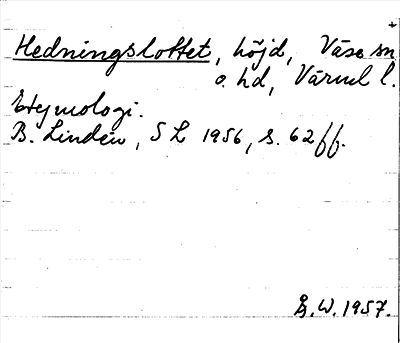 Hedningslottet, höjd, Väse sn
o. hd, Värml l.
Etymologi.
B. Lindén, S L 1956, s. 62 ff.
B. W. 1957.